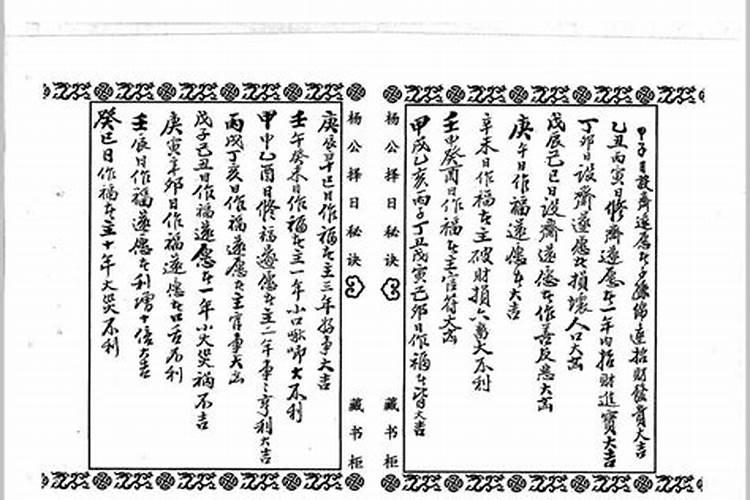 甲子日設齋遂愿主子孫綿遠招財發貴大吉
乙丑丙寅日修齋遂愿主一年內招財進寶大吉
丁卯日設齋遂愿主損壞人口大凶
戊辰己巳日設齋遂愿主作善反惡大凶
庚午日作福遂愿主大吉
辛未日作福主主破財損六畜大不利
壬申癸酉日作福主主官符大凶
甲戌乙亥丙子丁丑戊寅己卯日作福主皆大吉
杨公择日秘诀
藏书柜
杨公择日秘诀
藏书柜
庚辰辛巳日作福主主三年好事大吉
壬午癸未日作福主主一年小口啾唧大不利
甲申乙酉日修福遂愿主主二年事事亨利大吉
丙戌丁亥日作福遂愿主主官事大凶
戊子己丑日作福遂愿主一年小火災禍不吉
庚寅辛卯日作福遂愿主口舌不利
壬辰日作福遂愿主利增十倍大吉
癸巳日作福主主十年火災不利